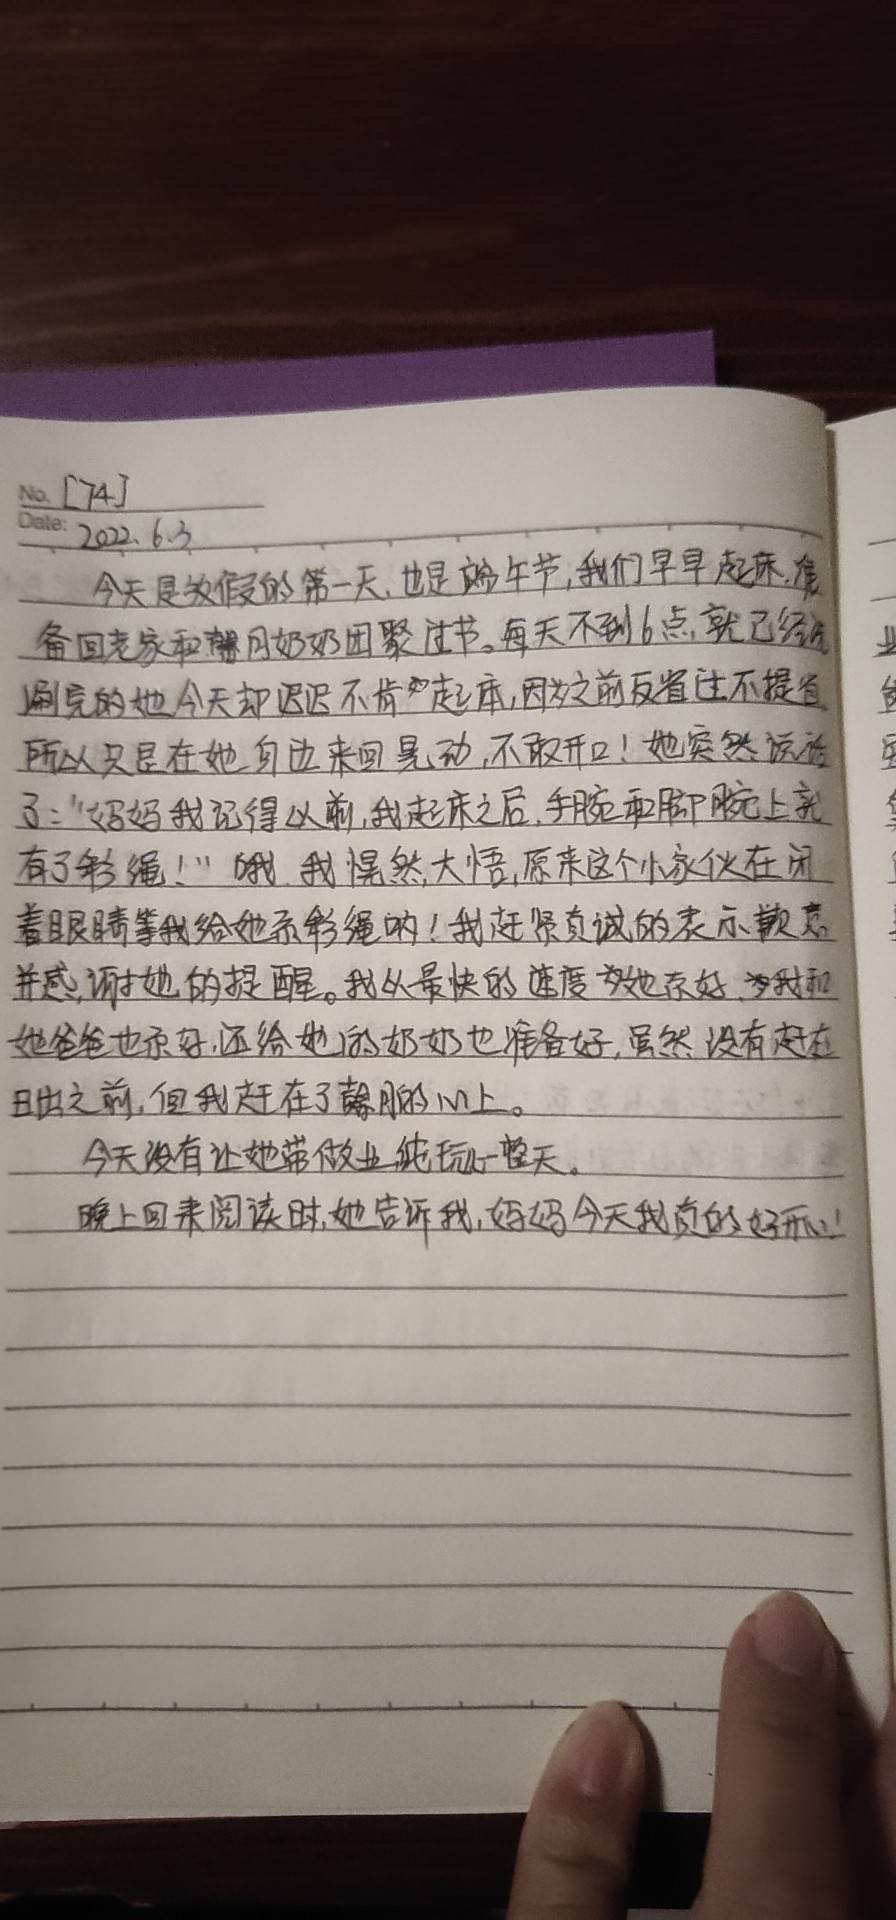 No. [74]
Date: 2022.6.3
今天是放假的第一天,也是端午节,我们早早起床,准
备回老家和馨月奶奶团聚过节。每天不到6点就已经洗
涮完的她今天却迟迟不肯起床,因为之前反省过不提省
所以只是在她身边来回晃动,不敢开口!她突然说话
了:"妈妈我记得以前,我起床之后,手腕和脚腕上就
有了彩绳!"哦 我愰然大悟,原来这个小家伙在闭
着眼睛等我给她系彩绳呐!我赶紧真诚的表示歉意
并感谢她的提醒。我以最快的速度为她系好,为我和
她爸爸也系好,还给她的奶奶也准备好,虽然没有赶在
日出之前,但我赶在了馨月的心上。
今天没有让她带作业,纯玩一整天。
晚上回来阅读时,她告诉我,妈妈今天我真的好开心!